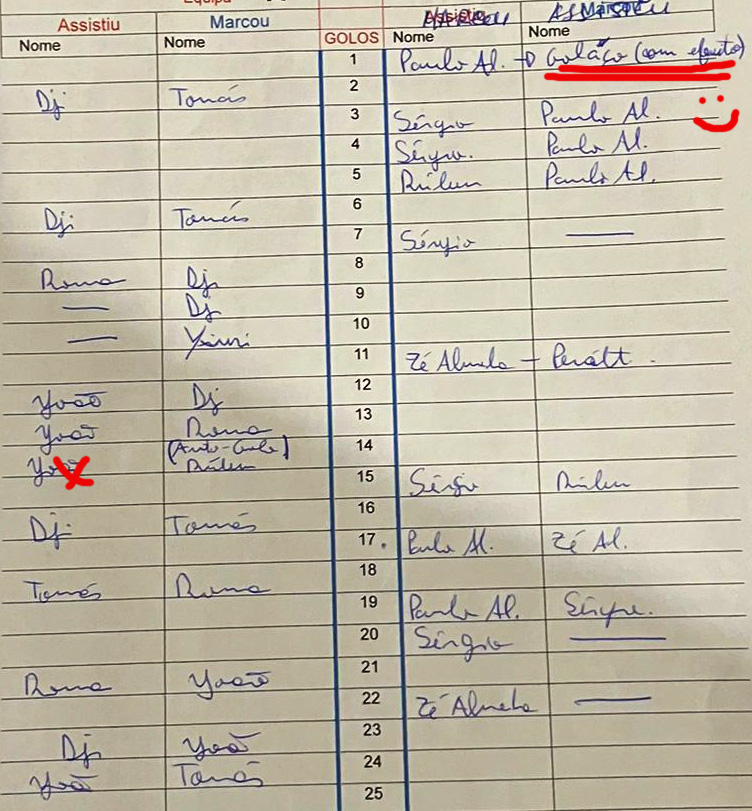 Equipa
Assistiu Marcou MARCOU ASSISTEU
Nome Nome GOLOS Nome Nome
1 Paulo Al. → Golaço (com efeito)
Dji Tomás 2
3 Sérgio Paulo Al.
4 Sérgio. Paulo Al.
5 Rúben Paulo Al.
Dji Tomás 6
7 Sérgio —
Roma Dji 8
— Dji 9
— Yiuri 10
11 Zé Almeida — Peralt.
Yoão Dji 12
Yoão Roma 13
Yoão (Auto-Golo) Rúben 14
15 Sérgio Rúben
Dji Tomás 16
17. Paulo Al. Zé Al.
Tomás Roma 18
19 Paulo Al. Sérgio.
20 Sérgio —
Roma Yoão 21
22 Zé Almeida —
Dji Yoão 23
Yoão Tomás 24
25